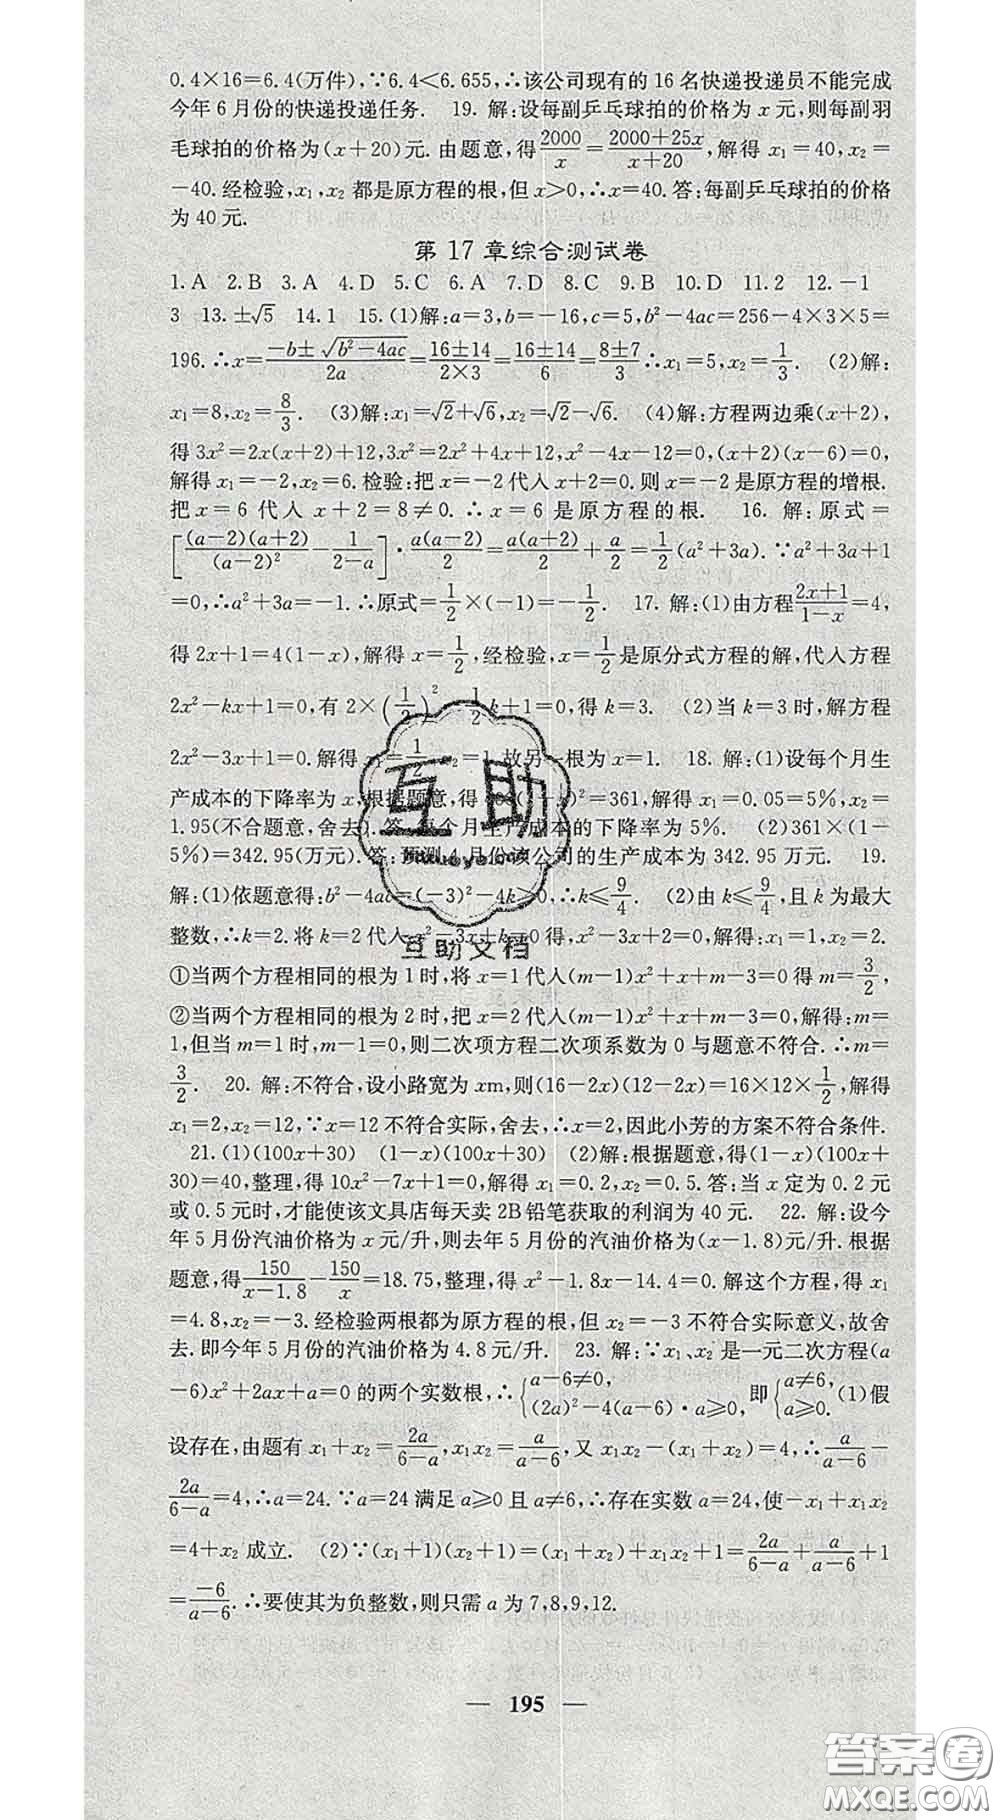 0.4×16=6.4(万件),∵6.4<6.655,∴该公司现有的16名快递投递员不能完成
今年6月份的快递投递任务. 19. 解:设每副乒乓球拍的价格为x元,则每副羽
毛球拍的价格为(x+20)元.由题意,得2000/x=(2000+25x)/(x+20),解得x₁=40,x₂=
-40.经检验,x₁,x₂都是原方程的根,但x>0,∴x=40.答:每副乒乓球拍的价格
为40元.
第17章综合测试卷
1.A 2.B 3.A 4.D 5.C 6.A 7.D 8.C 9.B 10.D 11.2 12.-1
3 13.±√5 14.1 15.(1)解:a=3,b=-16,c=5,b²-4ac=256-4×3×5=
196.∴x=(-b±√(b²-4ac))/2a=(16±14)/(2×3)=(16±14)/6=(8±7)/3∴x₁=5,x₂=1/3. (2)解:
x₁=8,x₂=8/3. (3)解:x₁=√2+√6,x₂=√2-√6. (4)解:方程两边乘(x+2),
得3x²=2x(x+2)+12,3x²=2x²+4x+12,x²-4x-12=0,(x+2)(x-6)=0,
解得x₁=-2,x₂=6.检验:把x=-2代入x+2=0.则x=-2是原方程的增根.
把x=6代入x+2=8≠0.∴x=6是原方程的根. 16. 解:原式=
[(a-2)(a+2)/(a-2)²-1/(2-a)]·a(a-2)/2=a(a+2)/2+a/2=1/2(a²+3a).∵a²+3a+1
=0,∴a²+3a=-1.∴原式=1/2×(-1)=-1/2. 17. 解:(1)由方程(2x+1)/(1-x)=4,
得2x+1=4(1-x),解得x=1/2,经检验,x=1/2是原分式方程的解,代入方程
2x²-kx+1=0,有2×(1/2)²-1/2k+1=0,得k=3. (2)当k=3时,解方程
2x²-3x+1=0.解得x₁=1/2,x₂=1.故另一根为x=1. 18. 解:(1)设每个月生
产成本的下降率为x,根据题意,得400(1-x)²=361,解得x₁=0.05=5%,x₂=
1.95(不合题意,舍去).答:每个月生产成本的下降率为5%. (2)361×(1-
5%)=342.95(万元).答:预测4月份该公司的生产成本为342.95万元. 19.
解:(1)依题意得:b²-4ac=(-3)²-4k≥0,∴k≤9/4. (2)由k≤9/4,且k为最大
整数,∴k=2.将k=2代入x²-3x+k=0得,x²-3x+2=0解得:x₁=1,x₂=2.
①当两个方程相同的根为1时,将x=1代人(m-1)x²+x+m-3=0得m=3/2,
②当两个方程相同的根为2时,把x=2代入(m-1)x²+x+m-3=0,解得:m=
1,但当m=1时,m-1=0,则二次项方程二次项系数为0与题意不符合.∴m=
3/2. 20. 解:不符合,设小路宽为xm,则(16-2x)(12-2x)=16×12×1/2,解得
x₁=2,x₂=12,∵x=12不符合实际,舍去,∴x=2,因此小芳的方案不符合条件.
21.(1)(100x+30) (1-x)(100x+30) (2)解:根据题意,得(1-x)(100x+
30)=40,整理,得10x²-7x+1=0,解得x₁=0.2,x₂=0.5.答:当x定为0.2元
或0.5元时,才能使该文具店每天卖2B铅笔获取的利润为40元. 22. 解:设今
年5月份汽油价格为x元/升,则去年5月份的汽油价格为(x-1.8)元/升.根据
题意,得150/(x-1.8)-150/x=18.75,整理,得x²-1.8x-14.4=0.解这个方程,得x₁
=4.8,x₂=-3.经检验两根都为原方程的根,但x₂=-3不符合实际意义,故舍
去.即今年5月份的汽油价格为4.8元/升. 23. 解:∵x₁、x₂是一元二次方程(a
-6)x²+2ax+a=0的两个实数根,∴{a-6≠0, (2a)²-4(a-6)·a≥0, 即{a≠6, a≥0. (1)假
设存在,由题有x₁+x₂=2a/(6-a),x₁x₂=a/(a-6),又x₁x₂-(x₁+x₂)=4,∴a/(a-6)-
2a/(6-a)=4,∴a=24.∵a=24满足a≥0且a≠6,∴存在实数a=24,使-x₁+x₁x₂
=4+x₂成立. (2)∵(x₁+1)(x₂+1)=(x₁+x₂)+x₁x₂+1=2a/(6-a)+a/(a-6)+1
=-6/(a-6).∴要使其为负整数,则只需a为7,8,9,12.
— 195 —
互助
互助文档
答案圈
MXQE.COM